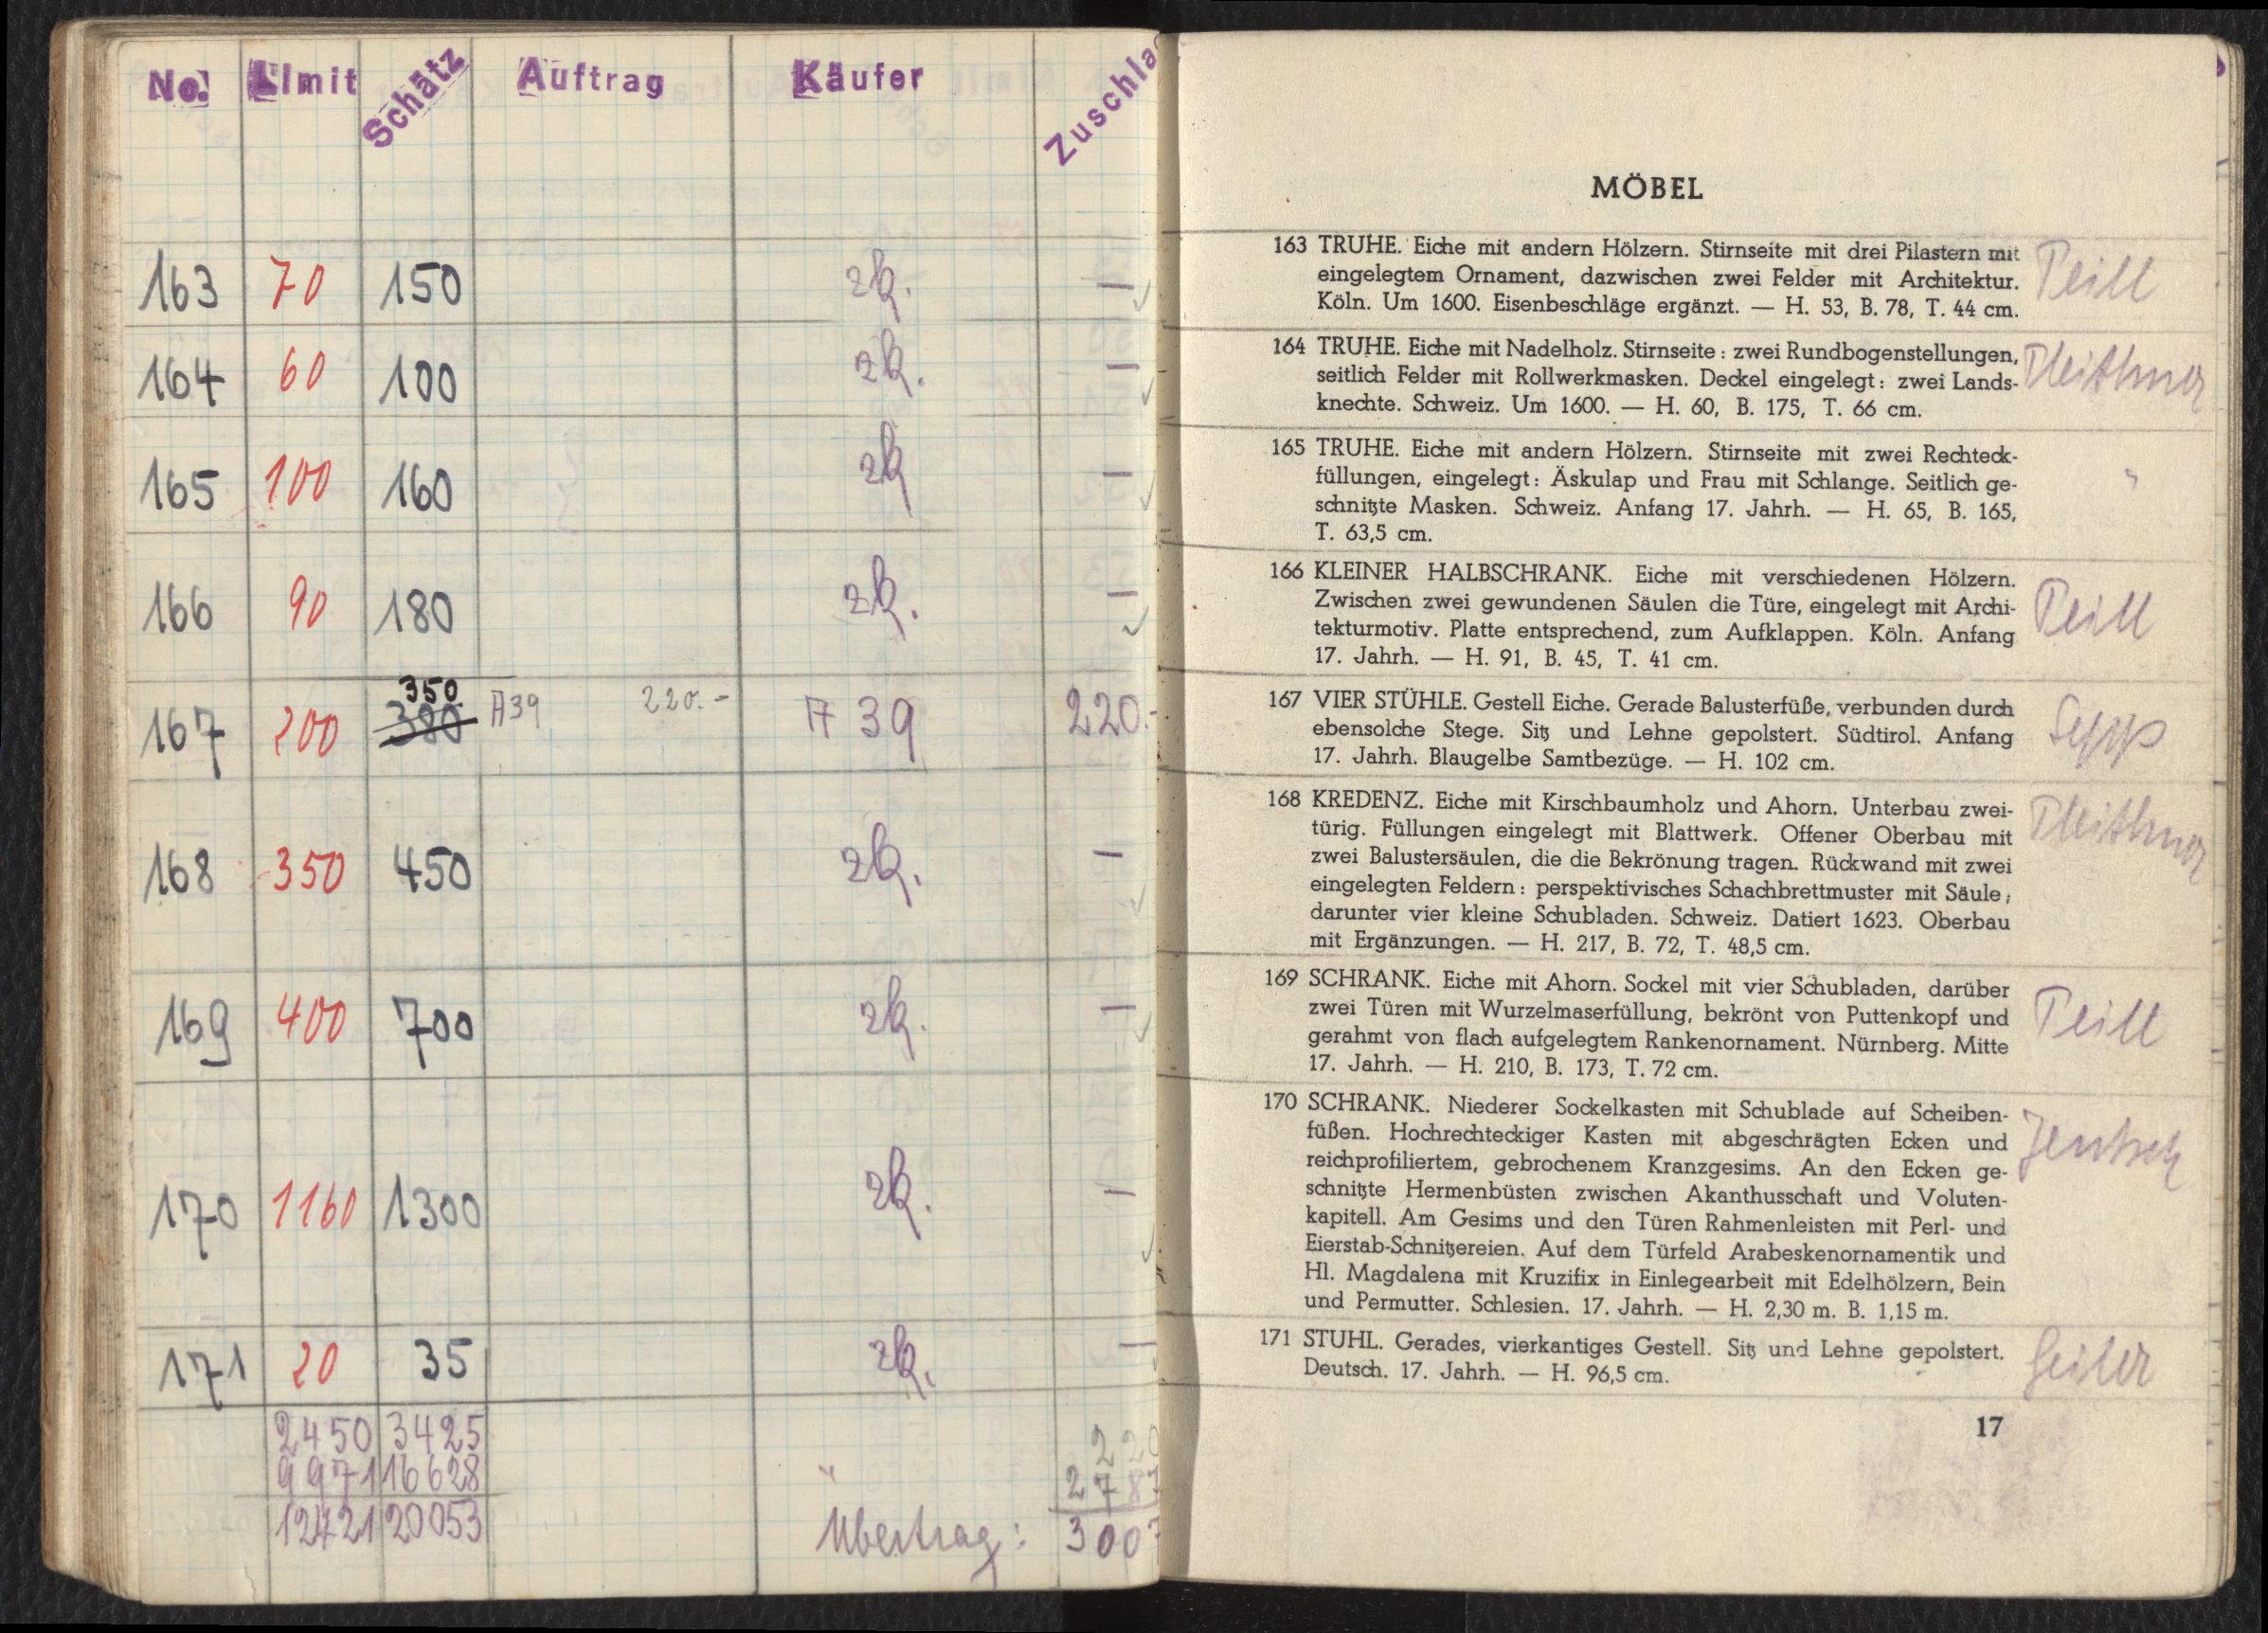 No. Limit Schätz Auftrag Käufer Zuschla
163 70 150 zk. —
164 60 100 zk. —
165 100 160 zk —
166 90 180 zk. —
350
167 200 380 A39 220.- A 39 220.-
168 350 450 zk. —
169 400 700 zk. —
170 1160 1300 zk. —
171 20 35 zk. —
2450 3425 220
9971 16628 2787
12421 20053 Übertrag: 3007
MÖBEL
163 TRUHE. Eiche mit andern Hölzern. Stirnseite mit drei Pilastern mit
eingelegtem Ornament, dazwischen zwei Felder mit Architektur.
Köln. Um 1600. Eisenbeschläge ergänzt. — H. 53, B. 78, T. 44 cm.
Peill
164 TRUHE. Eiche mit Nadelholz. Stirnseite: zwei Rundbogenstellungen,
seitlich Felder mit Rollwerkmasken. Deckel eingelegt: zwei Lands-
knechte. Schweiz. Um 1600. — H. 60, B. 175, T. 66 cm.
165 TRUHE. Eiche mit andern Hölzern. Stirnseite mit zwei Rechteck-
füllungen, eingelegt: Äskulap und Frau mit Schlange. Seitlich ge-
schnitzte Masken. Schweiz. Anfang 17. Jahrh. — H. 65, B. 165,
T. 63,5 cm.
"
166 KLEINER HALBSCHRANK. Eiche mit verschiedenen Hölzern.
Zwischen zwei gewundenen Säulen die Türe, eingelegt mit Archi-
tekturmotiv. Platte entsprechend, zum Aufklappen. Köln. Anfang
17. Jahrh. — H. 91, B. 45, T. 41 cm.
Peill
167 VIER STÜHLE. Gestell Eiche. Gerade Balusterfüße, verbunden durch
ebensolche Stege. Sitz und Lehne gepolstert. Südtirol. Anfang
17. Jahrh. Blaugelbe Samtbezüge. — H. 102 cm.
Sepp
168 KREDENZ. Eiche mit Kirschbaumholz und Ahorn. Unterbau zwei-
türig. Füllungen eingelegt mit Blattwerk. Offener Oberbau mit
zwei Balustersäulen, die die Bekrönung tragen. Rückwand mit zwei
eingelegten Feldern: perspektivisches Schachbrettmuster mit Säule;
darunter vier kleine Schubladen. Schweiz. Datiert 1623. Oberbau
mit Ergänzungen. — H. 217, B. 72, T. 48,5 cm.
169 SCHRANK. Eiche mit Ahorn. Sockel mit vier Schubladen, darüber
zwei Türen mit Wurzelmaserfüllung, bekrönt von Puttenkopf und
gerahmt von flach aufgelegtem Rankenornament. Nürnberg. Mitte
17. Jahrh. — H. 210, B. 173, T. 72 cm.
Peill
170 SCHRANK. Niederer Sockelkasten mit Schublade auf Scheiben-
füßen. Hochrechteckiger Kasten mit abgeschrägten Ecken und
reichprofiliertem, gebrochenem Kranzgesims. An den Ecken ge-
schnitzte Hermenbüsten zwischen Akanthusschaft und Voluten-
kapitell. Am Gesims und den Türen Rahmenleisten mit Perl- und
Eierstab-Schnitzereien. Auf dem Türfeld Arabeskenornamentik und
Hl. Magdalena mit Kruzifix in Einlegearbeit mit Edelhölzern, Bein
und Permutter. Schlesien. 17. Jahrh. — H. 2,30 m. B. 1,15 m.
Jentsch
171 STUHL. Gerades, vierkantiges Gestell. Sitz und Lehne gepolstert.
Deutsch. 17. Jahrh. — H. 96,5 cm.
Geiler
17